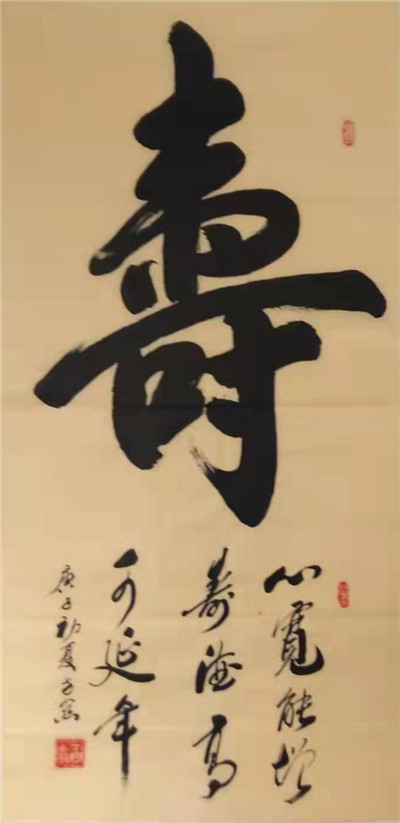 壽
心寬能增
壽德高
可延年
庚子初夏子琴